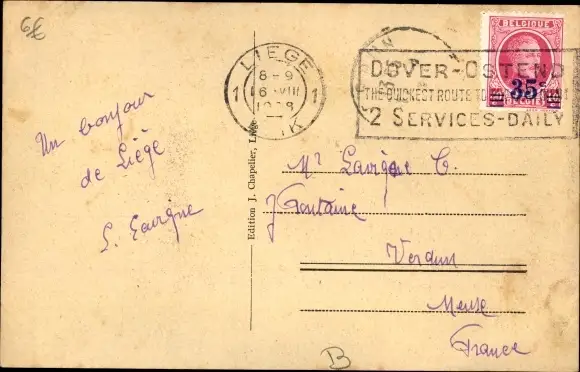 6€
Un bonjour
de Liège
L. Lavigne
Edition J. Chapelier, Liége
LIEGE
8-9
6 VIII
1928
1 1
K
DOVER-OSTEND
THE QUICKEST ROUTE TO
2 SERVICES-DAILY
BELGIQUE
35c
BELGIË
Mr Lavigne C.
J Fontaine
Verdun
Meuse
France
B